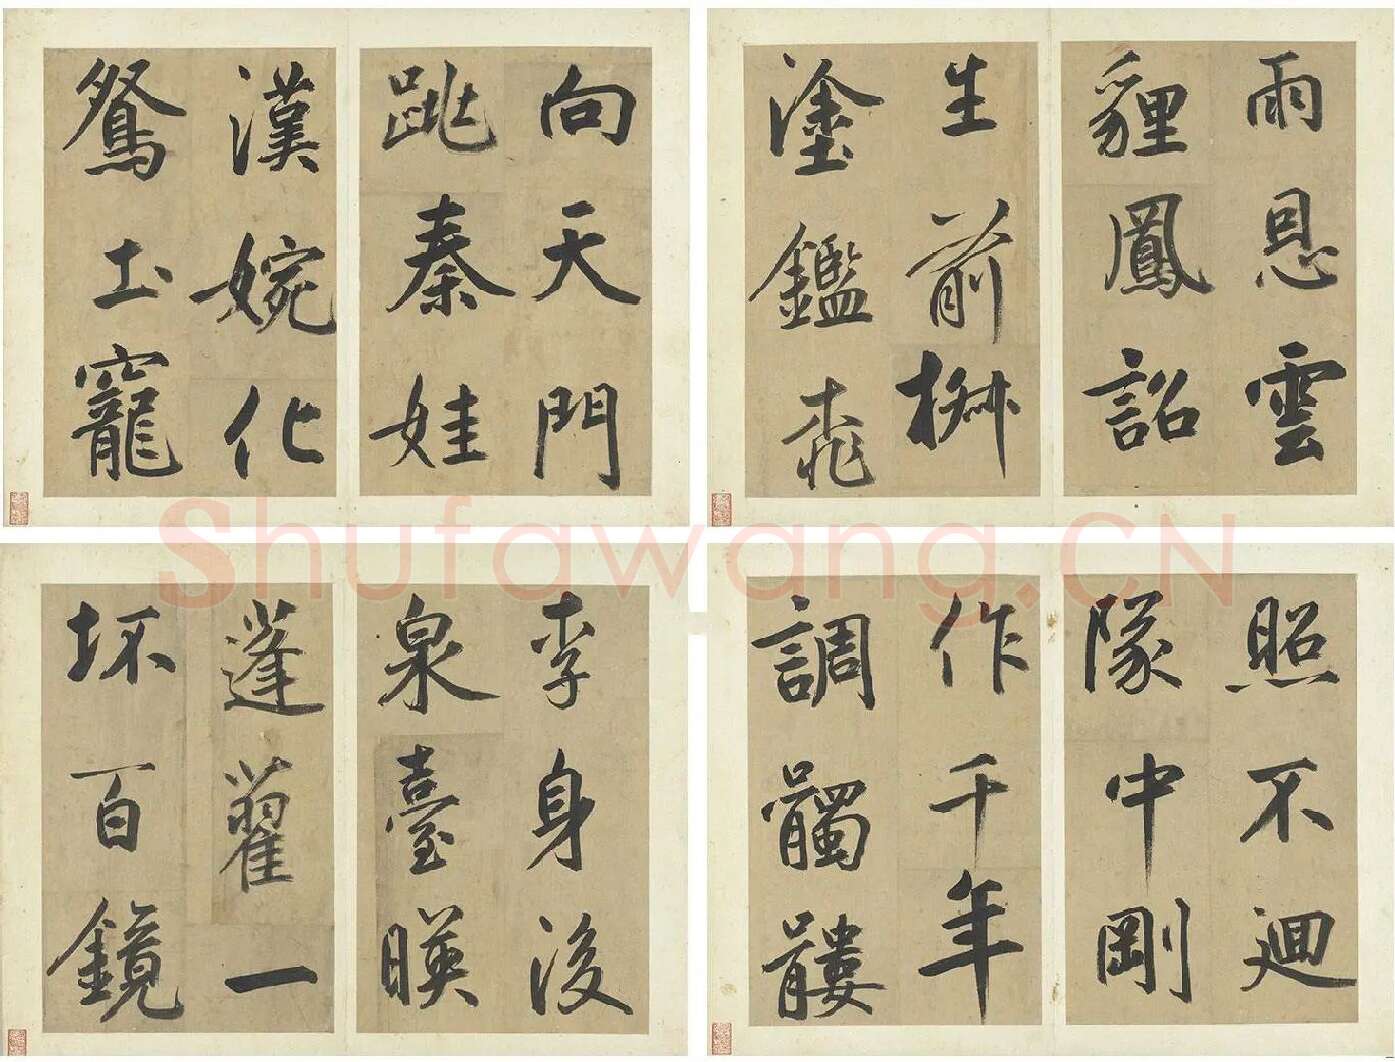 向天門
跳秦娃
漢婉化
鴛土寵
雨恩雲
貍鳳詔
生前椒
塗鑑桃
李身後
泉臺暎
蓬藋一
坏百鏡
照不迴
隊中剛
作千年
調髑髏
Shufawang.CN